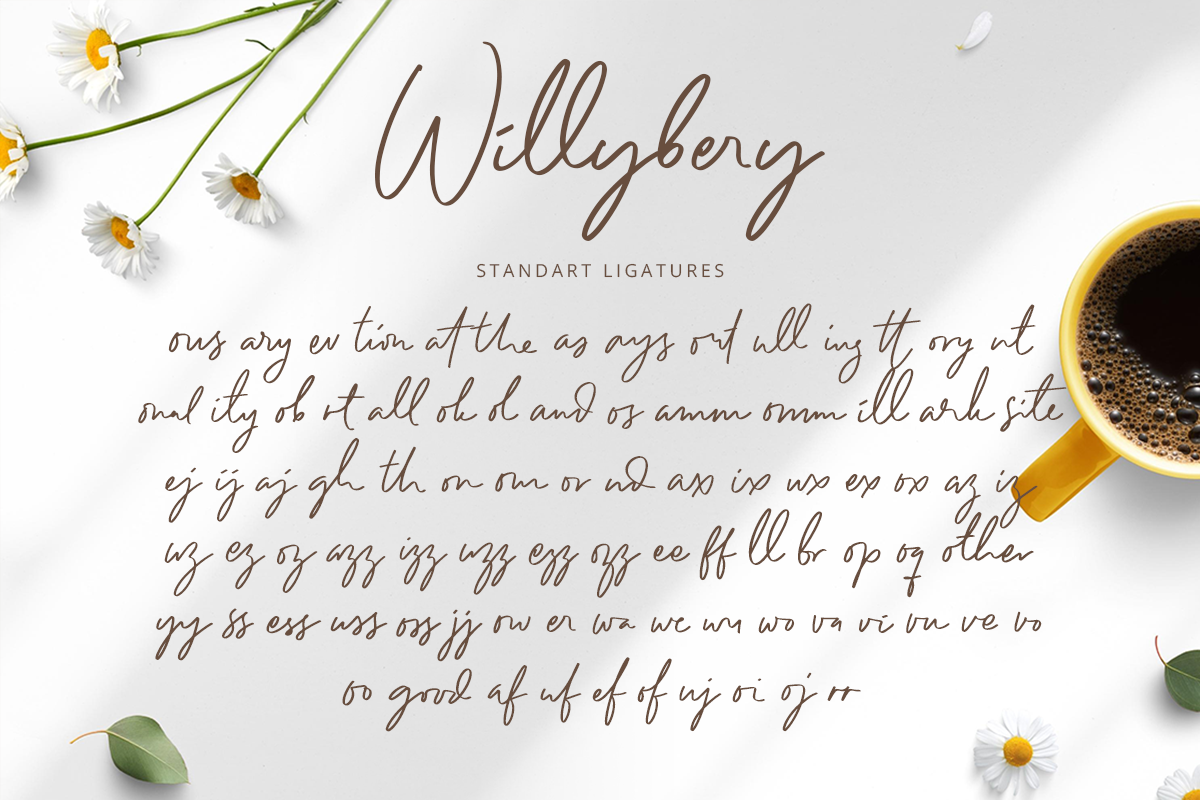 Willybery
STANDART LIGATURES
ous ary ev tion at the as ays out ull ing tt ory nt
onal ity ob rt all ok ol and os amm omm ill ark site
ej ij aj gh th on om or nd ax ix ux ex ox az iz
uz ez oz azz izz uzz ezz ozz ee ff ll br op oq other
yy ss ess uss oss jj ow er wa we wu wo va vi vu ve vo
oo good af uf ef of uj oi oj rr